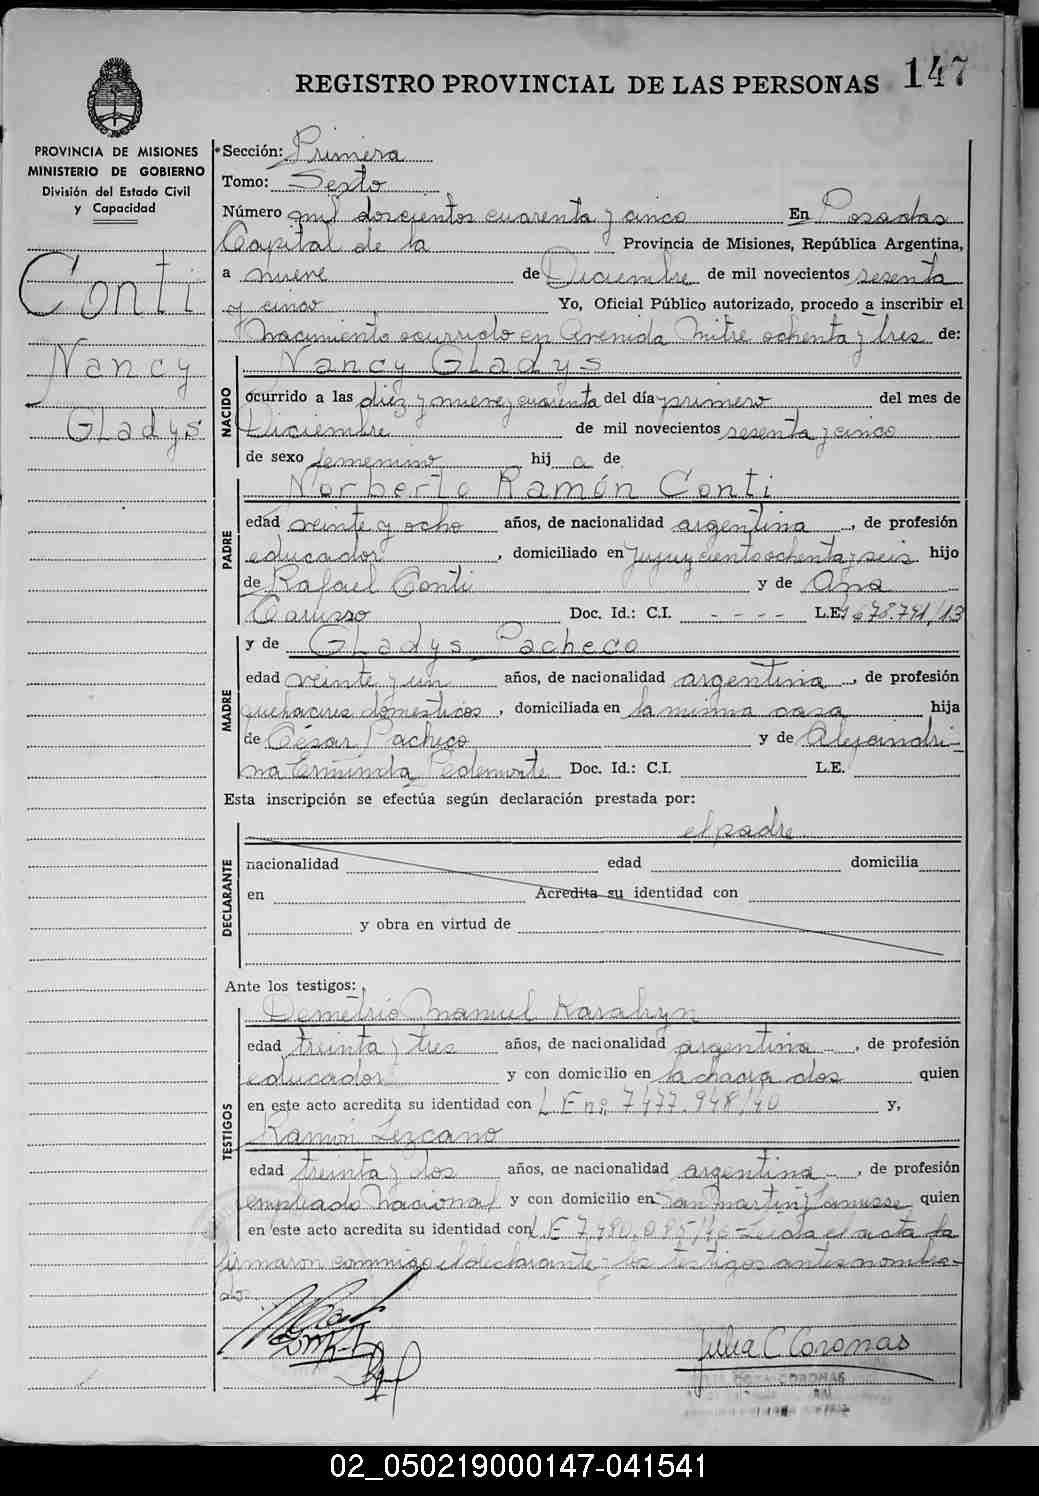 REGISTRO PROVINCIAL DE LAS PERSONAS 147
PROVINCIA DE MISIONES
MINISTERIO DE GOBIERNO
División del Estado Civil
y Capacidad
Conti
Nancy
Gladys
Sección: Primera
Tomo: Sexto
Número mil doscientos cuarenta y cinco En Posadas
Capital de la Provincia de Misiones, República Argentina,
a nueve de Diciembre de mil novecientos sesenta
y cinco Yo, Oficial Público autorizado, procedo a inscribir el
Nacimiento ocurrido en Avenida Mitre ochenta y tres de:
NACIDO
Nancy Gladys
ocurrido a las diez y nueve y cuarenta del día primero del mes de
Diciembre de mil novecientos sesenta y cinco
de sexo femenino hij a de
PADRE
Norberto Ramón Conti
edad veinte y ocho años, de nacionalidad argentina, de profesión
educador, domiciliado en Jujuy ciento ochenta y seis hijo
de Rafael Conti y de Ana
Carusso Doc. Id.: C.I. - - - - L.E.
MADRE
y de Gladys Pacheco
edad veinte y un años, de nacionalidad argentina, de profesión
quehaceres domésticos, domiciliada en la misma casa hija
de César Pacheco y de Alejandri-
na Doc. Id.: C.I. L.E.
Esta inscripción se efectúa según declaración prestada por:
el padre
DECLARANTE
nacionalidad edad domicilia
en Acredita su identidad con
y obra en virtud de
Ante los testigos:
TESTIGOS
Demetrio Manuel
edad treinta y tres años, de nacionalidad argentina, de profesión
educador y con domicilio en la chacra dos quien
en este acto acredita su identidad con L E no. 7477.948/40 y,
Ramón Lezcano
edad treinta y dos años, de nacionalidad argentina, de profesión
empleado Nacional y con domicilio en San Martin y Lanusse quien
en este acto acredita su identidad con L E 7.480.085/40 - Leida el acta la
firmaron conmigo el declarante y los testigos antes nombra-
dos.
Julia C Coronas
CORONAS
02_050219000147-041541